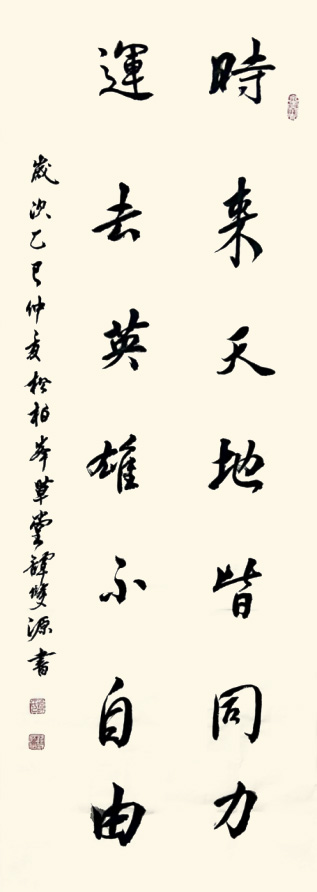 時来天地皆同力
運去英雄不自由
歲次乙巳仲夏於柏峰草堂譚雙源書